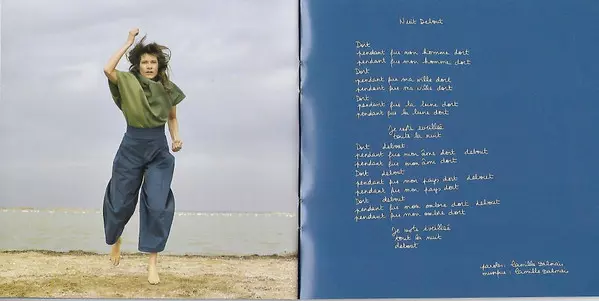 Nuit Debout
Dort
pendant que mon homme dort
pendant que mon homme dort
Dort
pendant que ma ville dort
pendant que ma ville dort
Dort
pendant que la lune dort
pendant que la lune dort
Je reste éveillée
toute la nuit
Dort debout
pendant que mon âme dort debout
pendant que mon âme dort
Dort debout
pendant que mon pays dort debout
pendant que mon pays dort
Dort debout
pendant que mon ombre dort debout
pendant que mon ombre dort
Je reste éveillée
tout la nuit
debout
paroles: Camille Dalmais
musique: Camille Dalmais